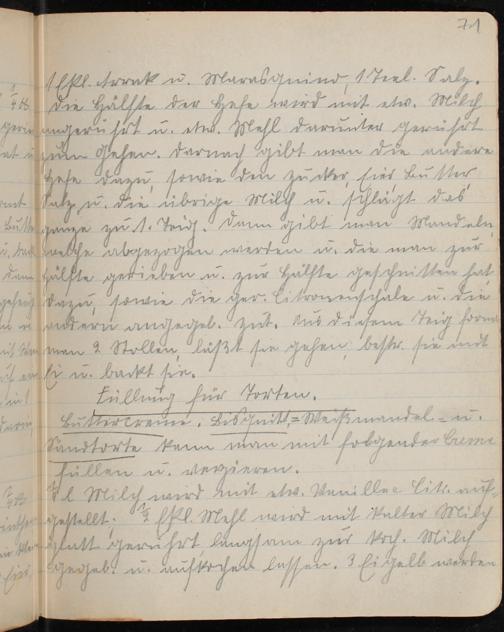 71
1 Eßl. Arrak u. Marasquino, 1 Teel. Salz.
Die Hälfte der Hefe wird mit etw. Milch
angerührt u. etw. Mehl darunter gerührt
zum Gehen. Darnach gibt man die andere
Hefe dazu, sowie den Zucker, Eier, Butter
Salz u. die übrige Milch u. schlägt das
ganze zu 1. Teig. Dann gibt man Mandeln,
welche abgezogen werden u. die man zur
Hälfte gerieben u. zur Hälfte geschnitten hat
dazu, sowie die ger. Citronenschale u. die
andern angegeb. Zut. Aus diesem Teig formt
man 2 Stollen, läßt sie gehen, bestr. sie mit
Ei u. backt sie.
Füllung für Torten.
Buttercreme. Bisquitt= Weißmandel- u.
Sandtorte kann man mit folgender Creme
füllen u. verzieren.
l Milch wird mit etw. Vanille Citr. auf-
gestellt; ½ Eßl. Mehl wird mit kalter Milch
glatt gerührt, langsam zur koch. Milch
gegeb. u. aufkochen lassen. 3 Eigelb werden